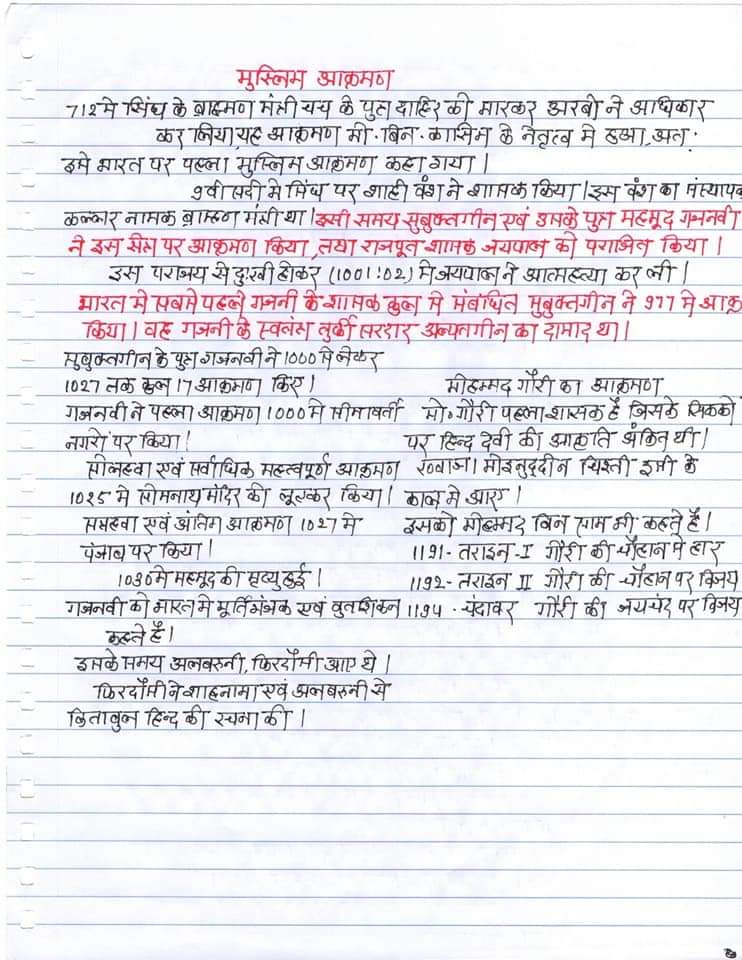 मुस्लिम आक्रमण
712 मे सिंध के ब्राह्मण मंत्री चच के पुत्र दाहिर को मारकर अरबो ने अधिकार
कर लिया, यह आक्रमण मो. बिन. कासिम के नेतृत्व मे हुआ, अतः
इसे भारत पर पहला मुस्लिम आक्रमण कहा गया।
9वी सदी मे सिंध पर शाही वंश ने शासक किया। इस वंश का संस्थापक
कल्लार नामक ब्राह्मण मंत्री था। इसी समय सुबुक्तगीन एवं उसके पुत्र महमूद गजनवी
ने इस क्षेत्र पर आक्रमण किया, तथा राजपूत शासक जयपाल को पराजित किया।
इस पराजय से दुःखी होकर (1001:02) मे जयपाल ने आत्महत्या कर ली।
भारत मे सबसे पहले गजनी के शासक कुल से संबंधित सुबुक्तगीन ने 977 मे आक्र
किया। वह गजनी के स्वतंत्र तुर्की सरदार अल्पतगीन का दामाद था।
सुबुक्तगीन के पुत्र गजनवी ने 1000 से लेकर
1027 तक कुल 17 आक्रमण किए।
गजनवी ने पहला आक्रमण 1000 मे सीमावर्ती
नगरो पर किया।
सोलहवा एवं सर्वाधिक महत्वपूर्ण आक्रमण
1025 मे सोमनाथ मंदिर को लूटकर किया।
सत्रहवा एवं अंतिम आक्रमण 1027 मे
पंजाब पर किया।
1030 मे महमूद की मृत्यु हुई।
गजनवी को भारत मे मूर्तिभंजक एवं बुतशिकन
कहते है।
इसके समय अलबरुनी, फिरदौसी आए थे।
फिरदौसी ने शाहनामा एवं अलबरुनी से
किताबुल हिन्द की रचना की।
मोहम्मद गौरी का आक्रमण
मो. गौरी पहला शासक है जिसके सिक्को
पर हिन्द देवी की आक्रति अंकित थी।
ख्वाजा मोइनुद्दीन चिश्ती इसी के
काल मे आए।
इसको मोहम्मद बिन साम भी कहते है।
1191- तराइन-I गौरी की चौहान से हार
1192- तराइन II गौरी की चौहान पर विजय
1194 - चंदावर गौरी की जयचंद पर विजय